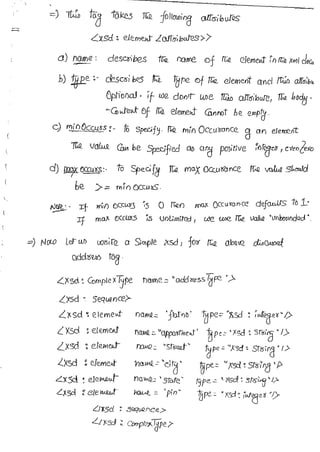 =) This tag takes the following attributes
<xsd: element <attributes>>
a) name: describes the name of the element in the xml docu
b) type :- describes the type of the element and this attribu
Optional. if we don't use this attribute, the body -
-Content of the element cannot be empty.
c) minOccurs :- to specify the min Occurance of an element
The value Can be specified as any positive integer, even zero
d) maxoccurs:- to specify the max Occurance the value should
be >= minoccurs.
Note:- If min occurs is 0 then max Occurance defaults to 1.
If max occurs is unlimited, we use the value "unbounded".
=) Now let us write a Simple xsd, for the above discussed
address tag.
<xsd : ComplexType name = "addressType">
<xsd - sequence>
<xsd : element name= "flatno" Type= "xsd : integer"/>
<xsd : element name= "appartment" type= "xsd : String" />
<xsd : element name= "street" type= "xsd : String" />
<xsd : element name= "city" type= "xsd : String"/>
<xsd : element name= "state" type= "xsd : string"/>
<xsd : element name = "pin" type= "xsd : integer"/>
</xsd : sequence>
</xsd : complexType>